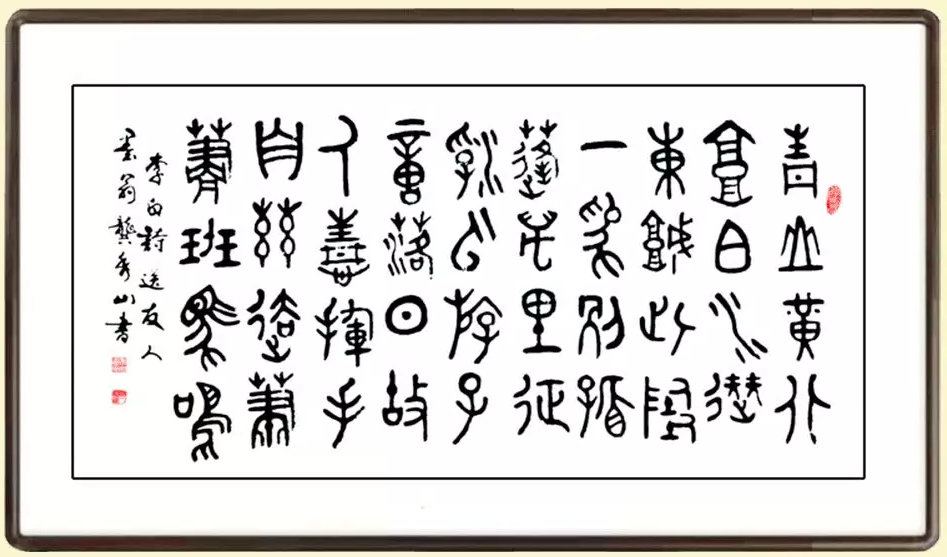 青山黃北
郭白水繞
東城此地
一爲別孤
蓬萬里征
浮雲游子
意落日故
人情揮手
自茲去蕭
蕭班馬鳴
李白詩送友人
翁龔秀山書